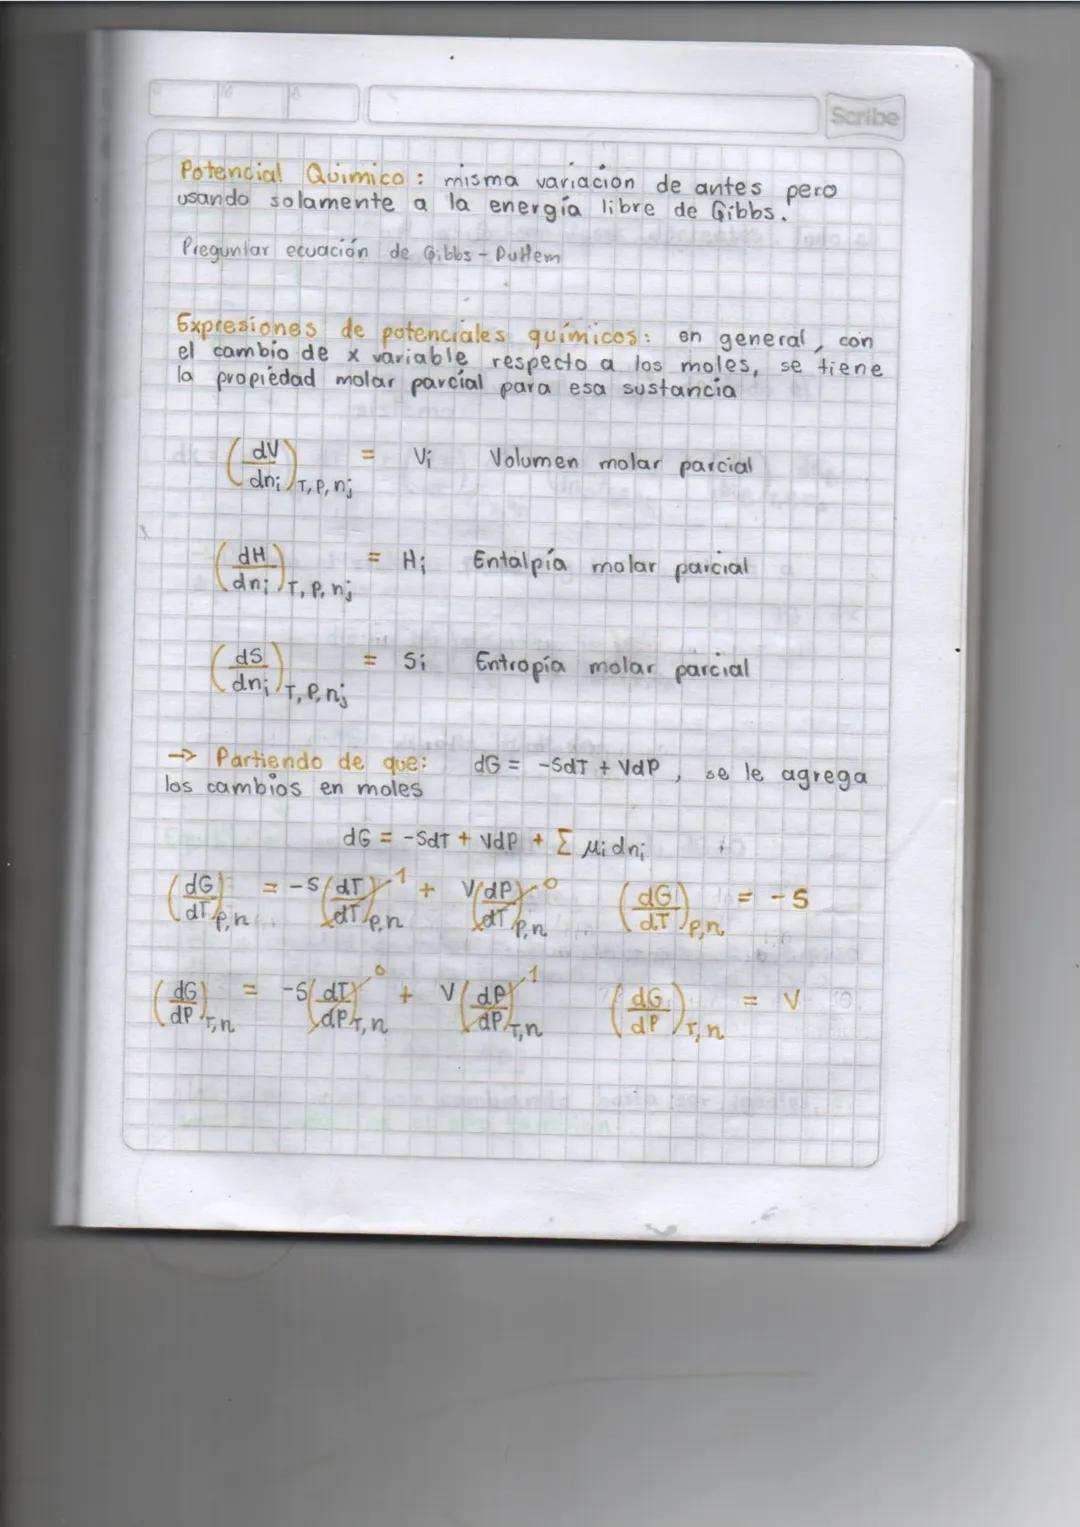 Scribe
Potencial Químico : misma variación de antes pero
usando solamente a la energía libre de Gibbs.
Preguntar ecuación de Gibbs - DuHem
Expresiones de potenciales químicos: en general, con
el cambio de x variable respecto a los moles, se tiene
la propiedad molar parcial para esa sustancia
(dV/dni)T,P,nj = Vi Volumen molar parcial
(dH/dni)T,P,nj = Hi Entalpía molar parcial
(dS/dni)T,P,nj = Si Entropía molar parcial
-> Partiendo de que: dG = -SdT + VdP , se le agrega
los cambios en moles
dG = -SdT + VdP + Σ μi dni
(dG/dT)P,n = -S(dT/dT)P,n 1 + V(dP/dT)P,n 0 (dG/dT)P,n = -S
(dG/dP)T,n = -S(dT/dP)T,n 0 + V(dP/dP)T,n 1 (dG/dP)T,n = V